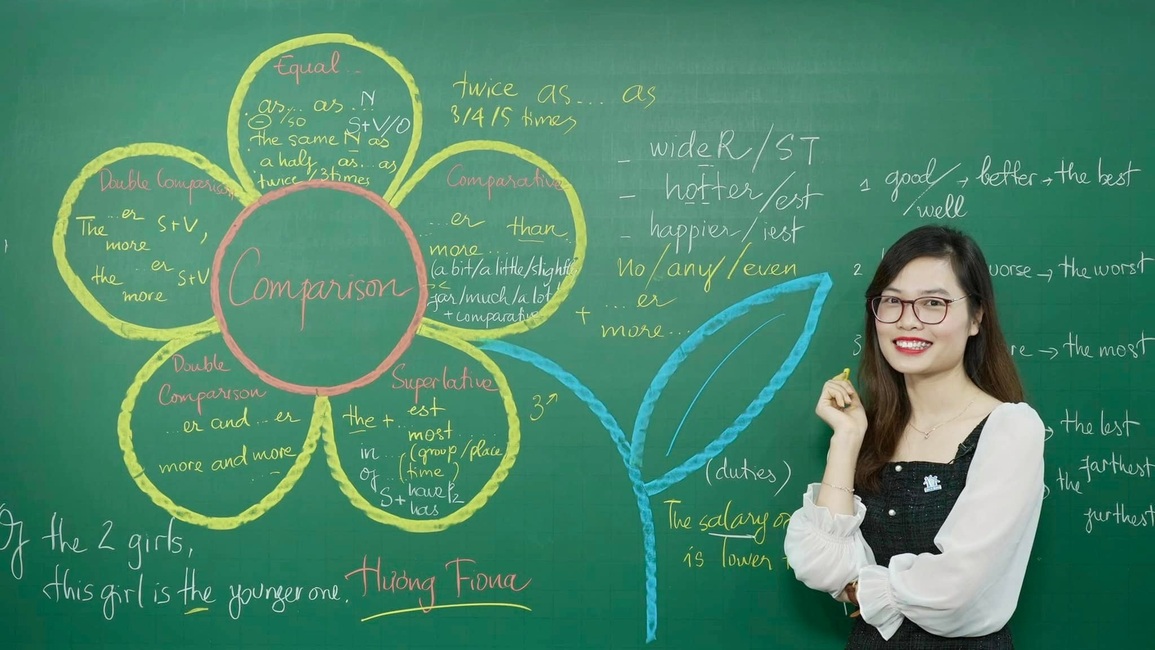 Equal...
as... as ... N
S+V/O
⊖/so
the same N as
a half as... as
twice / 3 times
twice as.... as
3/4/5 times
Double Comparison
The ...er S+V,
more
the ...er S+V
more
Comparison
Comparative
...er than
more...
(a bit/a little/slightly
far/much/a lot
+ comparative
- wideR/ST
- hotter/est
- happier/iest
no/any//even
+ ...er
more...
1 good/well → better → the best
2 worse → the worst
3 re → the most
→ the lest
the farthest
furthest
Double
Comparison
...er and ...er
more and more
Superlative
the + est
most
in ... (group/place
of (time)
S + have P2
has
3↗
(duties)
The salary o
is lower
Of the 2 girls,
this girl is the younger one.
Hương Fiona